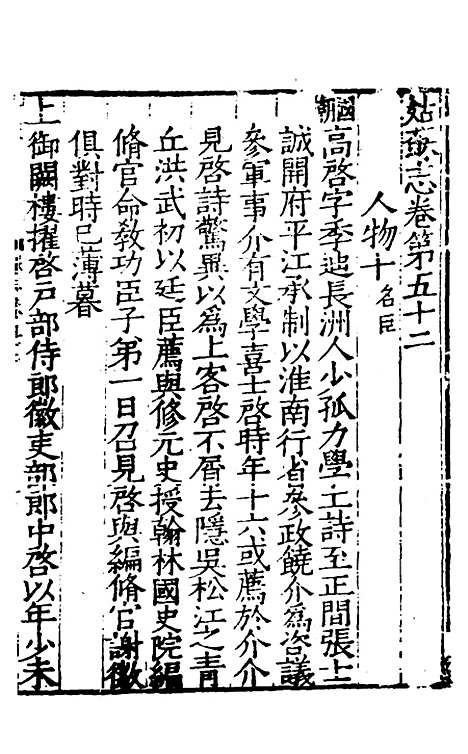 姑蘇志卷第五十二
人物十名臣
國朝高啓字季迪長洲人少孤力學工詩至正間張士
誠開府平江承制以淮南行省參政饒介爲咨議
參軍事介有文學喜士啓時年十六或薦於介介
見啓詩驚異以爲上客啓不屑去隱吳松江之青
丘洪武初以廷臣薦與修元史授翰林國史院編
脩官命敎功臣子弟一日召見啓與編脩官謝徽
俱對時已薄暮
上御闕樓擢啓戸部侍郎徽吏部郎中啓以年少未